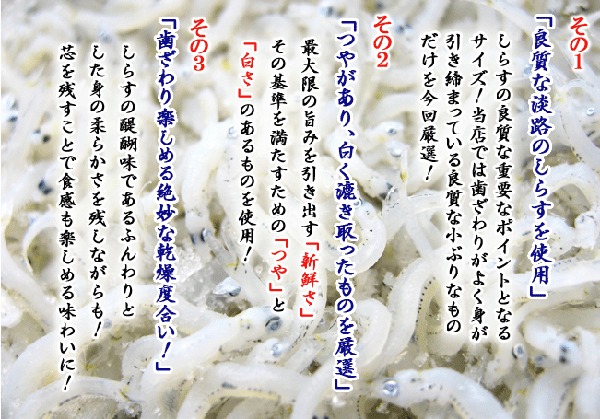 その1
「良質な淡路のしらすを使用」
しらすの良質な重要なポイントとなる
サイズ！当店では歯ざわりがよく身が
引き締まっている良質な小ぶりなもの
だけを今回厳選！
その2
「つやがあり、白く漉き取ったものを厳選」
最大限の旨みを引き出す「新鮮さ」
その基準を満たすための「つや」と
「白さ」のあるものを使用！
その3
「歯ざわり楽しめる絶妙な乾燥度合い！」
しらすの醍醐味であるふんわりと
した身の柔らかさを残しながらも！
芯を残すことで食感も楽しめる味わいに！